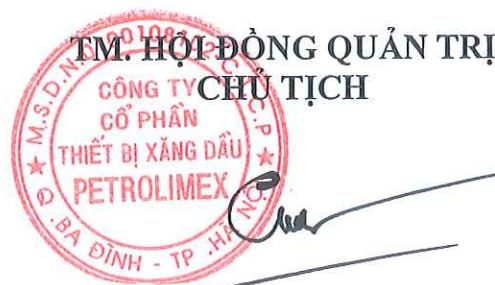 TM. HỘI ĐỒNG QUẢN TRỊ
CHỦ TỊCH
CÔNG TY
CỔ PHẦN
THIẾT BỊ XĂNG DẦU
PETROLIMEX
Q. BA ĐÌNH - TP. HÀ NỘI